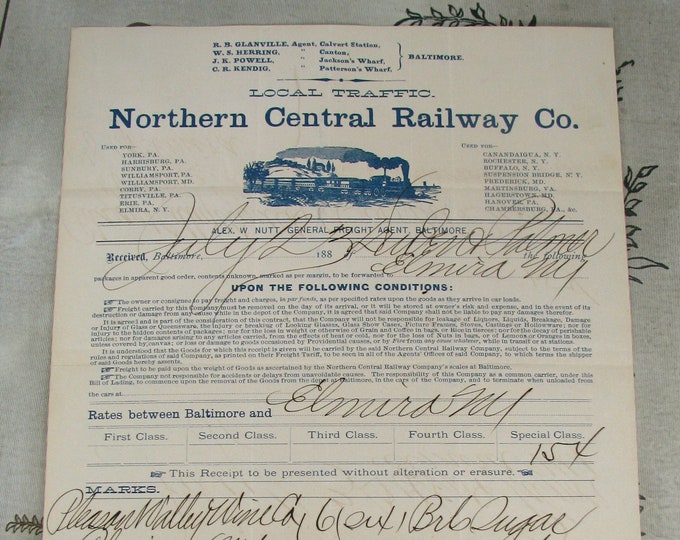 R. B. GLANVILLE, Agent, Calvert Station,
W. S. HERRING, " Canton,
J. K. POWELL, " Jackson's Wharf,
C. R. KENDIG, " Patterson's Wharf,
BALTIMORE.
LOCAL TRAFFIC.
Northern Central Railway Co.
USED FOR—
YORK, PA.
HARRISBURG, PA.
SUNBURY, PA.
WILLIAMSPORT, PA.
WILLIAMSPORT, MD.
CORRY, PA.
TITUSVILLE, PA.
ERIE, PA.
ELMIRA, N. Y.
USED FOR—
CANANDAIGUA, N. Y.
ROCHESTER, N. Y.
BUFFALO, N. Y.
SUSPENSION BRIDGE, N. Y.
FREDERICK, MD.
MARTINSBURG, VA.
HAGERSTOWN, MD.
HANOVER, PA.
CHAMBERSBURG, PA., &c.
ALEX. W. NUTT, GENERAL FREIGHT AGENT, BALTIMORE.
Received, Baltimore, July 188 the following
packages in apparent good order, contents unknown, marked as per margin, to be forwarded to Elmira NY
UPON THE FOLLOWING CONDITIONS:
The owner or consignee to pay freight and charges, as per funds, as per specified rates upon the goods as they arrive in car loads.
Freight carried by this Company must be removed on the day of its arrival, or it will be stored at owner's risk and expense, and in the event of its
destruction or damage from any cause while in the depot of the Company, it is agreed said Company shall not be liable to pay any damages therefor.
It is agreed and is part of the consideration of this contract, that the Company will not be responsible for leakage of Liquors, Liquids, Breakage, Damage
or Injury of Glass or Queensware, the injury or breaking of Looking Glasses, Glass Show Cases, Picture Frames, Stoves, Castings or Hollowware; nor for
injury to the hidden contents of packages; nor for the loss in weight or otherwise of Grain and Coffee in bags, or Rice in tierces; nor for the decay of perishable
articles; nor damage arising to any articles carried, from the effects of heat or cold, nor for the loss of Nuts in bags, or in crates, or Oranges in boxes,
unless covered by canvas; or loss or damage to goods occasioned by Providential causes, or by Fire from any cause whatever, while in transit or at stations.
It is understood that the Goods for which this receipt is given will be carried by the said Northern Central Railway Company, subject to the terms of the
rules and regulations of said Company, as printed on their Freight Tariff, to be seen in all of the Agents' Offices of said Company, to which terms the shipper
of said Goods hereby assents.
Freight to be paid upon the weight of Goods as ascertained by the Northern Central Railway Company's scales at Baltimore.
The Company not responsible for accidents or delays from unavoidable causes. The responsibility of this Company as a common carrier, under this
Bill of Lading, to commence upon the removal of the Goods from the depot at Baltimore, in the cars of the Company, and to terminate when unloaded
from the cars at
Rates between Baltimore and Elmira NY
First Class. Second Class. Third Class. Fourth Class. Special Class.
154
This Receipt to be presented without alteration or erasure.
MARKS.
Pleasant Valley Wine Co Brls Sugar